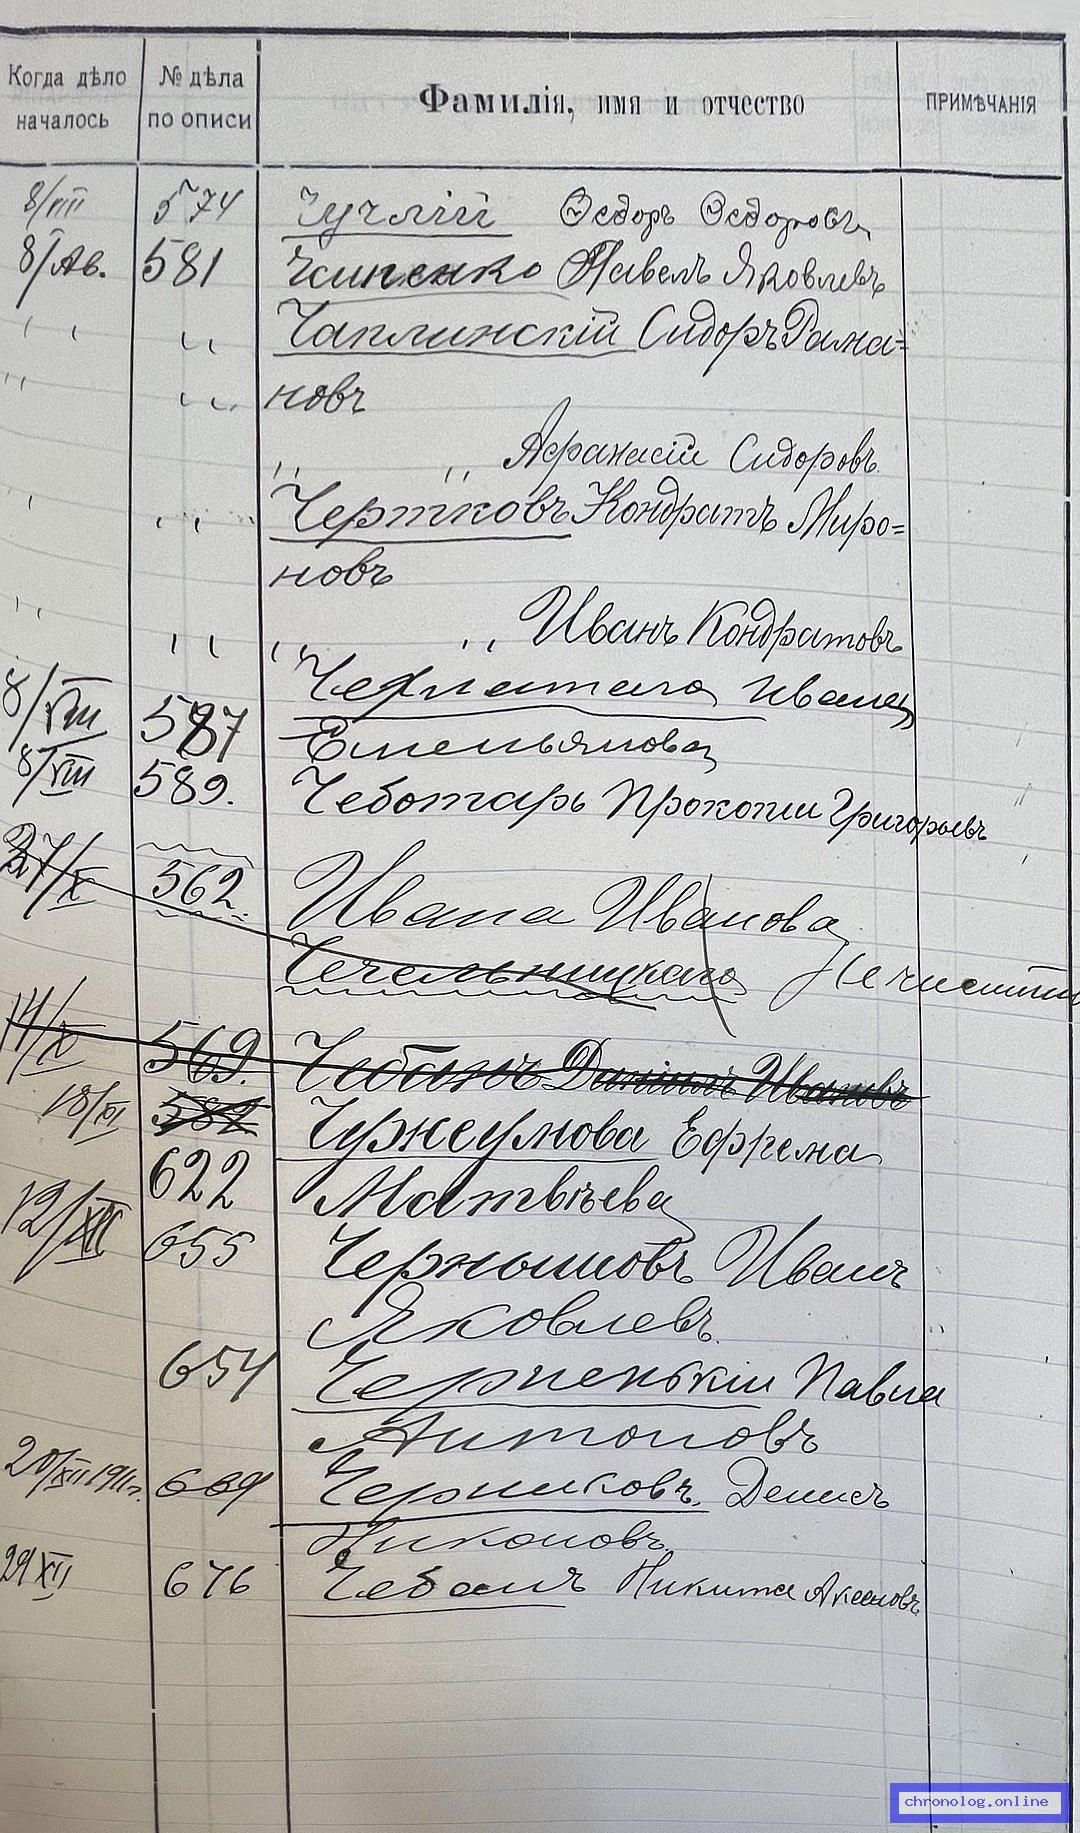 Когда дѣло началось
№ дѣла по описи
Фамилія, имя и отчество
ПРИМѢЧАНІЯ
8/VIII 574 Чучлій Ѳедоръ Ѳедоровъ
8/Ав. 581 Чапенко Павелъ Яковлевъ
" " Чаплинскій Сидоръ Рома=
" " новъ
" " Афанасій Сидоровъ
" " Чертковъ Кондратъ Миро=
новъ
" " " " Иванъ Кондратовъ
8/VIII 587 Ивана
Емельянова
8/VIII 589. Чеботарь Прокопій Григорьевъ
27/X 562. Ивана Иванова
Чечельницкаго
14/X 569. Чебанъ Даніилъ Ивановъ
18/XI 582 Чужеумова Ефрема
622 Матвѣева
12/XII 655 Чернышовъ Иванъ
Яковлевъ.
654 Черненькій Павла
Антоновъ
20/XII 1911г. 669 Черниковъ, Денисъ
Никоновъ
29 XII 676 Чебанъ Никита
chronolog.online